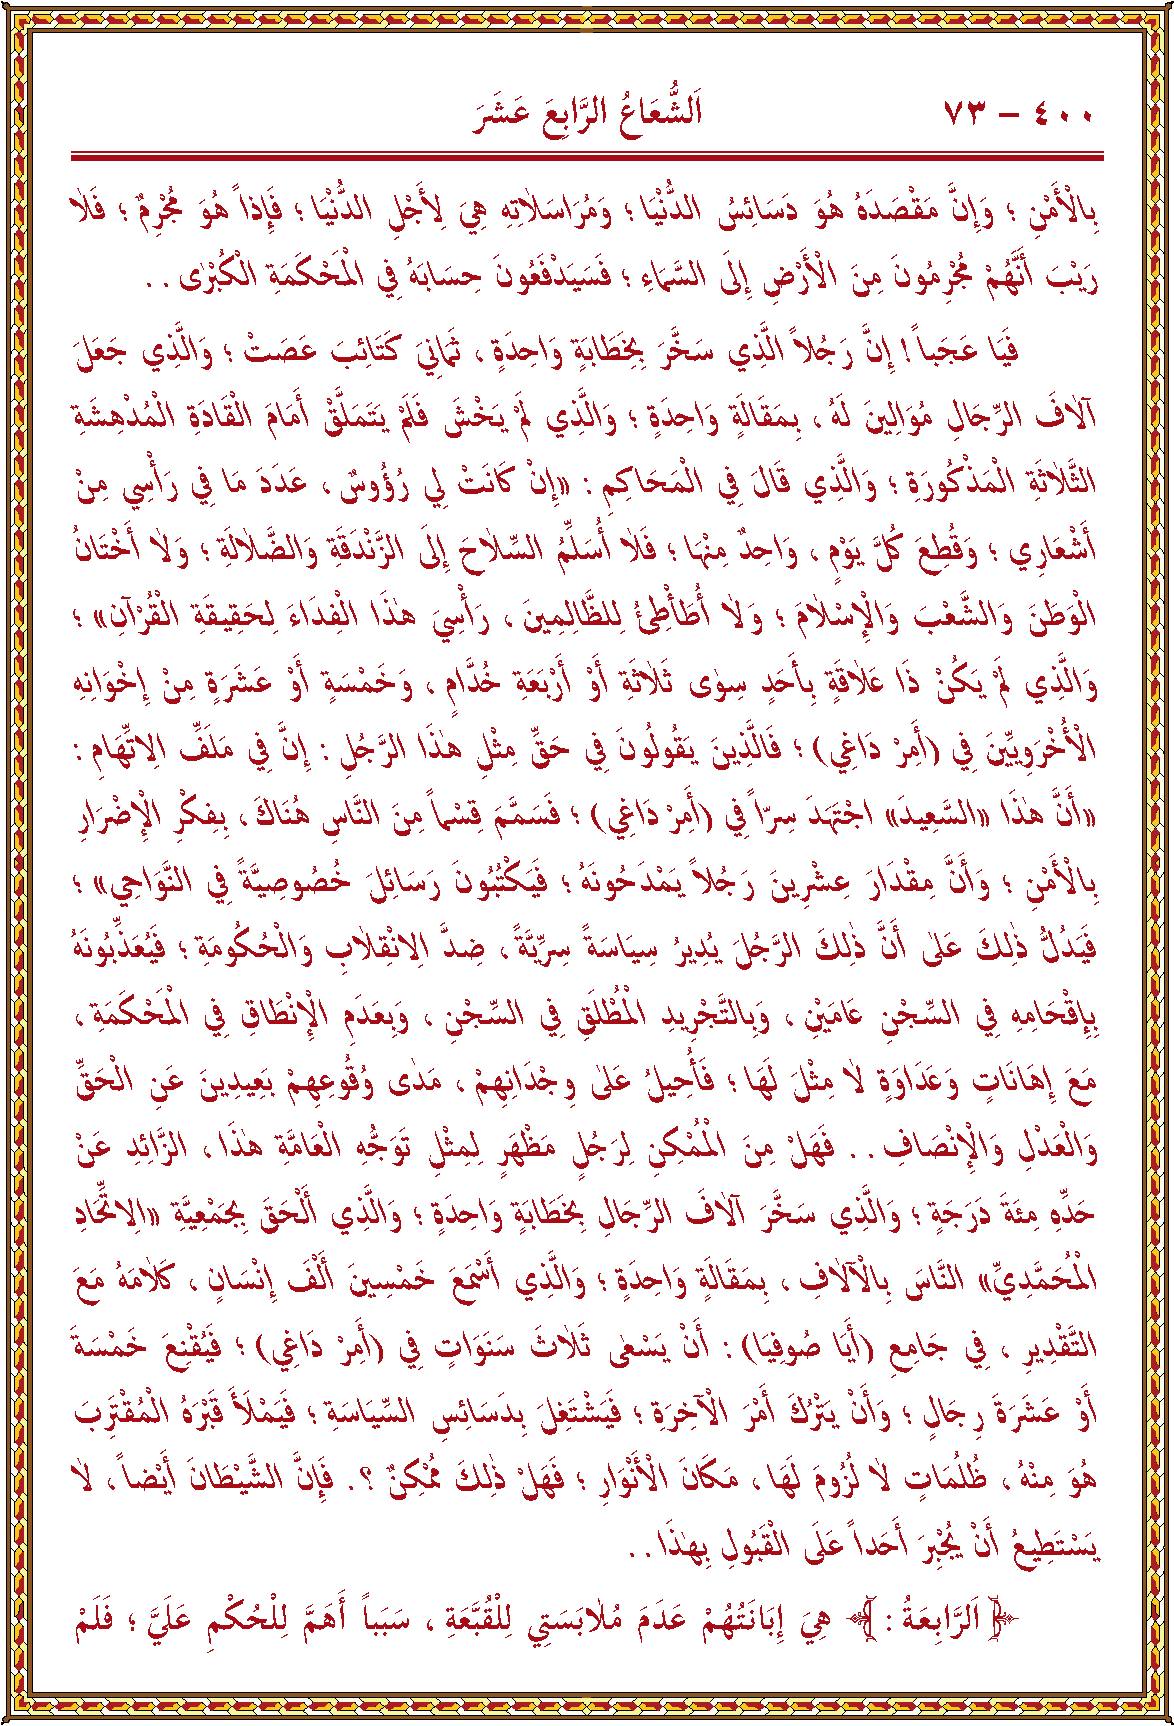 ٤٠٠ – ٧٣ اَلشُّعَاعُ الرَّابِعَ عَشَرَ
بِالْأَمْنِ ؛ وَإِنَّ مَقْصَدَهُ هُوَ دَسَائِسُ الدُّنْيَا ؛ وَمُرَاسَلَاتِهِ هِيَ لِأَجْلِ الدُّنْيَا ؛ فَإِذاً هُوَ مُجْرِمٌ ؛ فَلَا
رَيْبَ أَنَّهُمْ مُجْرِمُونَ مِنَ الْأَرْضِ إِلَى السَّمَاءِ ؛ فَسَيَدْفَعُونَ حِسَابَهُ فِي الْمَحْكَمَةِ الْكُبْرٰى . .
فَيَا عَجَباً ! إِنَّ رَجُلاً الَّذِي سَخَّرَ بِخَطَابَةٍ وَاحِدَةٍ ، ثَمَانِيَ كَتَائِبَ عَصَتْ ؛ وَالَّذِي جَعَلَ
آلَافَ الرِّجَالِ مُوَالِينَ لَهُ ، بِمَقَالَةٍ وَاحِدَةٍ ؛ وَالَّذِي لَمْ يَخْشَ فَلَمْ يَتَمَلَّقْ أَمَامَ الْقَادَةِ الْمُدْهِشَةِ
الثَّلَاثَةِ الْمَذْكُورَةِ ؛ وَالَّذِي قَالَ فِي الْمَحَاكِمِ : «إِنْ كَانَتْ لِي رُؤُوسٌ ، عَدَدَ مَا فِي رَأْسِي مِنْ
أَشْعَارِي ؛ وَقُطِعَ كُلَّ يَوْمٍ ، وَاحِدٌ مِنْهَا ؛ فَلَا أُسَلِّمُ السِّلَاحَ إِلَى الزَّنْدَقَةِ وَالضَّلَالَةِ ؛ وَلَا أَخْتَانُ
الْوَطَنَ وَالشَّعْبَ وَالْإِسْلَامَ ؛ وَلَا أُطَأْطِئُ لِلظَّالِمِينَ ، رَأْسِيَ هٰذَا الْفِدَاءَ لِحَقِيقَةِ الْقُرْآنِ» ؛
وَالَّذِي لَمْ يَكُنْ ذَا عَلَاقَةٍ بِأَحَدٍ سِوٰى ثَلَاثَةِ أَوْ أَرْبَعَةِ خُدَّامٍ ، وَخَمْسَةٍ أَوْ عَشَرَةٍ مِنْ إِخْوَانِهِ
الْأُخْرَوِيِّينَ فِي (أَمِرْ دَاغِي) ؛ فَالَّذِينَ يَقُولُونَ فِي حَقِّ مِثْلِ هٰذَا الرَّجُلِ : إِنَّ فِي مَلَفِّ الِاتِّهَامِ :
«أَنَّ هٰذَا «السَّعِيدَ» اجْتَهَدَ سِرّاً فِي (أَمِرْ دَاغِي) ؛ فَسَمَّمَ قِسْماً مِنَ النَّاسِ هُنَاكَ ، بِفِكْرِ الْإِضْرَارِ
بِالْأَمْنِ ؛ وَأَنَّ مِقْدَارَ عِشْرِينَ رَجُلاً يَمْدَحُونَهُ ؛ فَيَكْتُبُونَ رَسَائِلَ خُصُوصِيَّةً فِي النَّوَاحِي» ؛
فَيَدُلُّ ذٰلِكَ عَلٰى أَنَّ ذٰلِكَ الرَّجُلَ يُدِيرُ سِيَاسَةً سِرِّيَّةً ، ضِدَّ الِانْقِلَابِ وَالْحُكُومَةِ ؛ فَيُعَذِّبُونَهُ
بِإِقْحَامِهِ فِي السِّجْنِ عَامَيْنِ ، وَبِالتَّجْرِيدِ الْمُطْلَقِ فِي السِّجْنِ ، وَبِعَدَمِ الْإِنْطَاقِ فِي الْمَحْكَمَةِ ،
مَعَ إِهَانَاتٍ وَعَدَاوَةٍ لَا مِثْلَ لَهَا ؛ فَأُحِيلُ عَلٰى وِجْدَانِهِمْ ، مَدٰى وُقُوعِهِمْ بَعِيدِينَ عَنِ الْحَقِّ
وَالْعَدْلِ وَالْإِنْصَافِ . . فَهَلْ مِنَ الْمُمْكِنِ لِرَجُلٍ مَظْهَرٍ لِمِثْلِ تَوَجُّهِ الْعَامَّةِ هٰذَا ، الزَّائِدِ عَنْ
حَدِّهِ مِئَةَ دَرَجَةٍ ؛ وَالَّذِي سَخَّرَ آلَافَ الرِّجَالِ بِخَطَابَةٍ وَاحِدَةٍ ؛ وَالَّذِي أَلْحَقَ بِجَمْعِيَّةِ «الِاتِّحَادِ
الْمُحَمَّدِيِّ» النَّاسَ بِالْآلَافِ ، بِمَقَالَةٍ وَاحِدَةٍ ؛ وَالَّذِي أَسْمَعَ خَمْسِينَ أَلْفَ إِنْسَانٍ ، كَلَامَهُ مَعَ
التَّقْدِيرِ ، فِي جَامِعِ (أَيَا صُوفِيَا) : أَنْ يَسْعٰى ثَلَاثَ سَنَوَاتٍ فِي (أَمِرْ دَاغِي) ؛ فَيُقْنِعَ خَمْسَةَ
أَوْ عَشَرَةَ رِجَالٍ ؛ وَأَنْ يَتْرُكَ أَمْرَ الْآخِرَةِ ؛ فَيَشْتَغِلَ بِدَسَائِسِ السِّيَاسَةِ ؛ فَيَمْلَأَ قَبْرَهُ الْمُقْتَرِبَ
هُوَ مِنْهُ ، ظُلُمَاتٍ لَا لُزُومَ لَهَا ، مَكَانَ الْأَنْوَارِ ؛ فَهَلْ ذٰلِكَ مُمْكِنٌ ؟ . فَإِنَّ الشَّيْطَانَ أَيْضاً ، لَا
يَسْتَطِيعُ أَنْ يُجْبِرَ أَحَداً عَلَى الْقَبُولِ بِهٰذَا . .
﴿ اَلرَّابِعَةُ : ﴾ هِيَ إِبَانَتُهُمْ عَدَمَ مُلَابَسَتِي لِلْقُبَّعَةِ ، سَبَباً أَهَمَّ لِلْحُكْمِ عَلَيَّ ؛ فَلَمْ